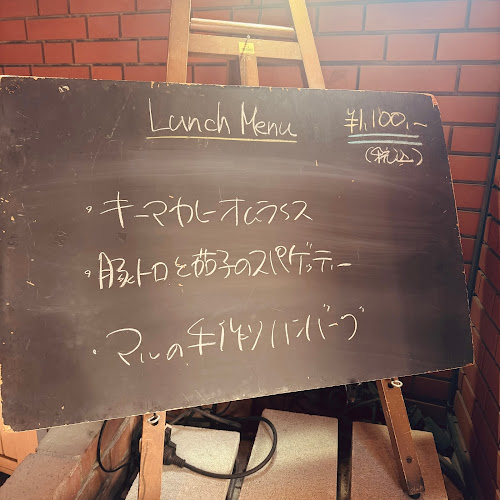 Lunch Menu
¥1,100.-
(税込)
・キーマカレーオムライス
・豚トロと茄子のスパゲッティー
・マルの手作りハンバーグ